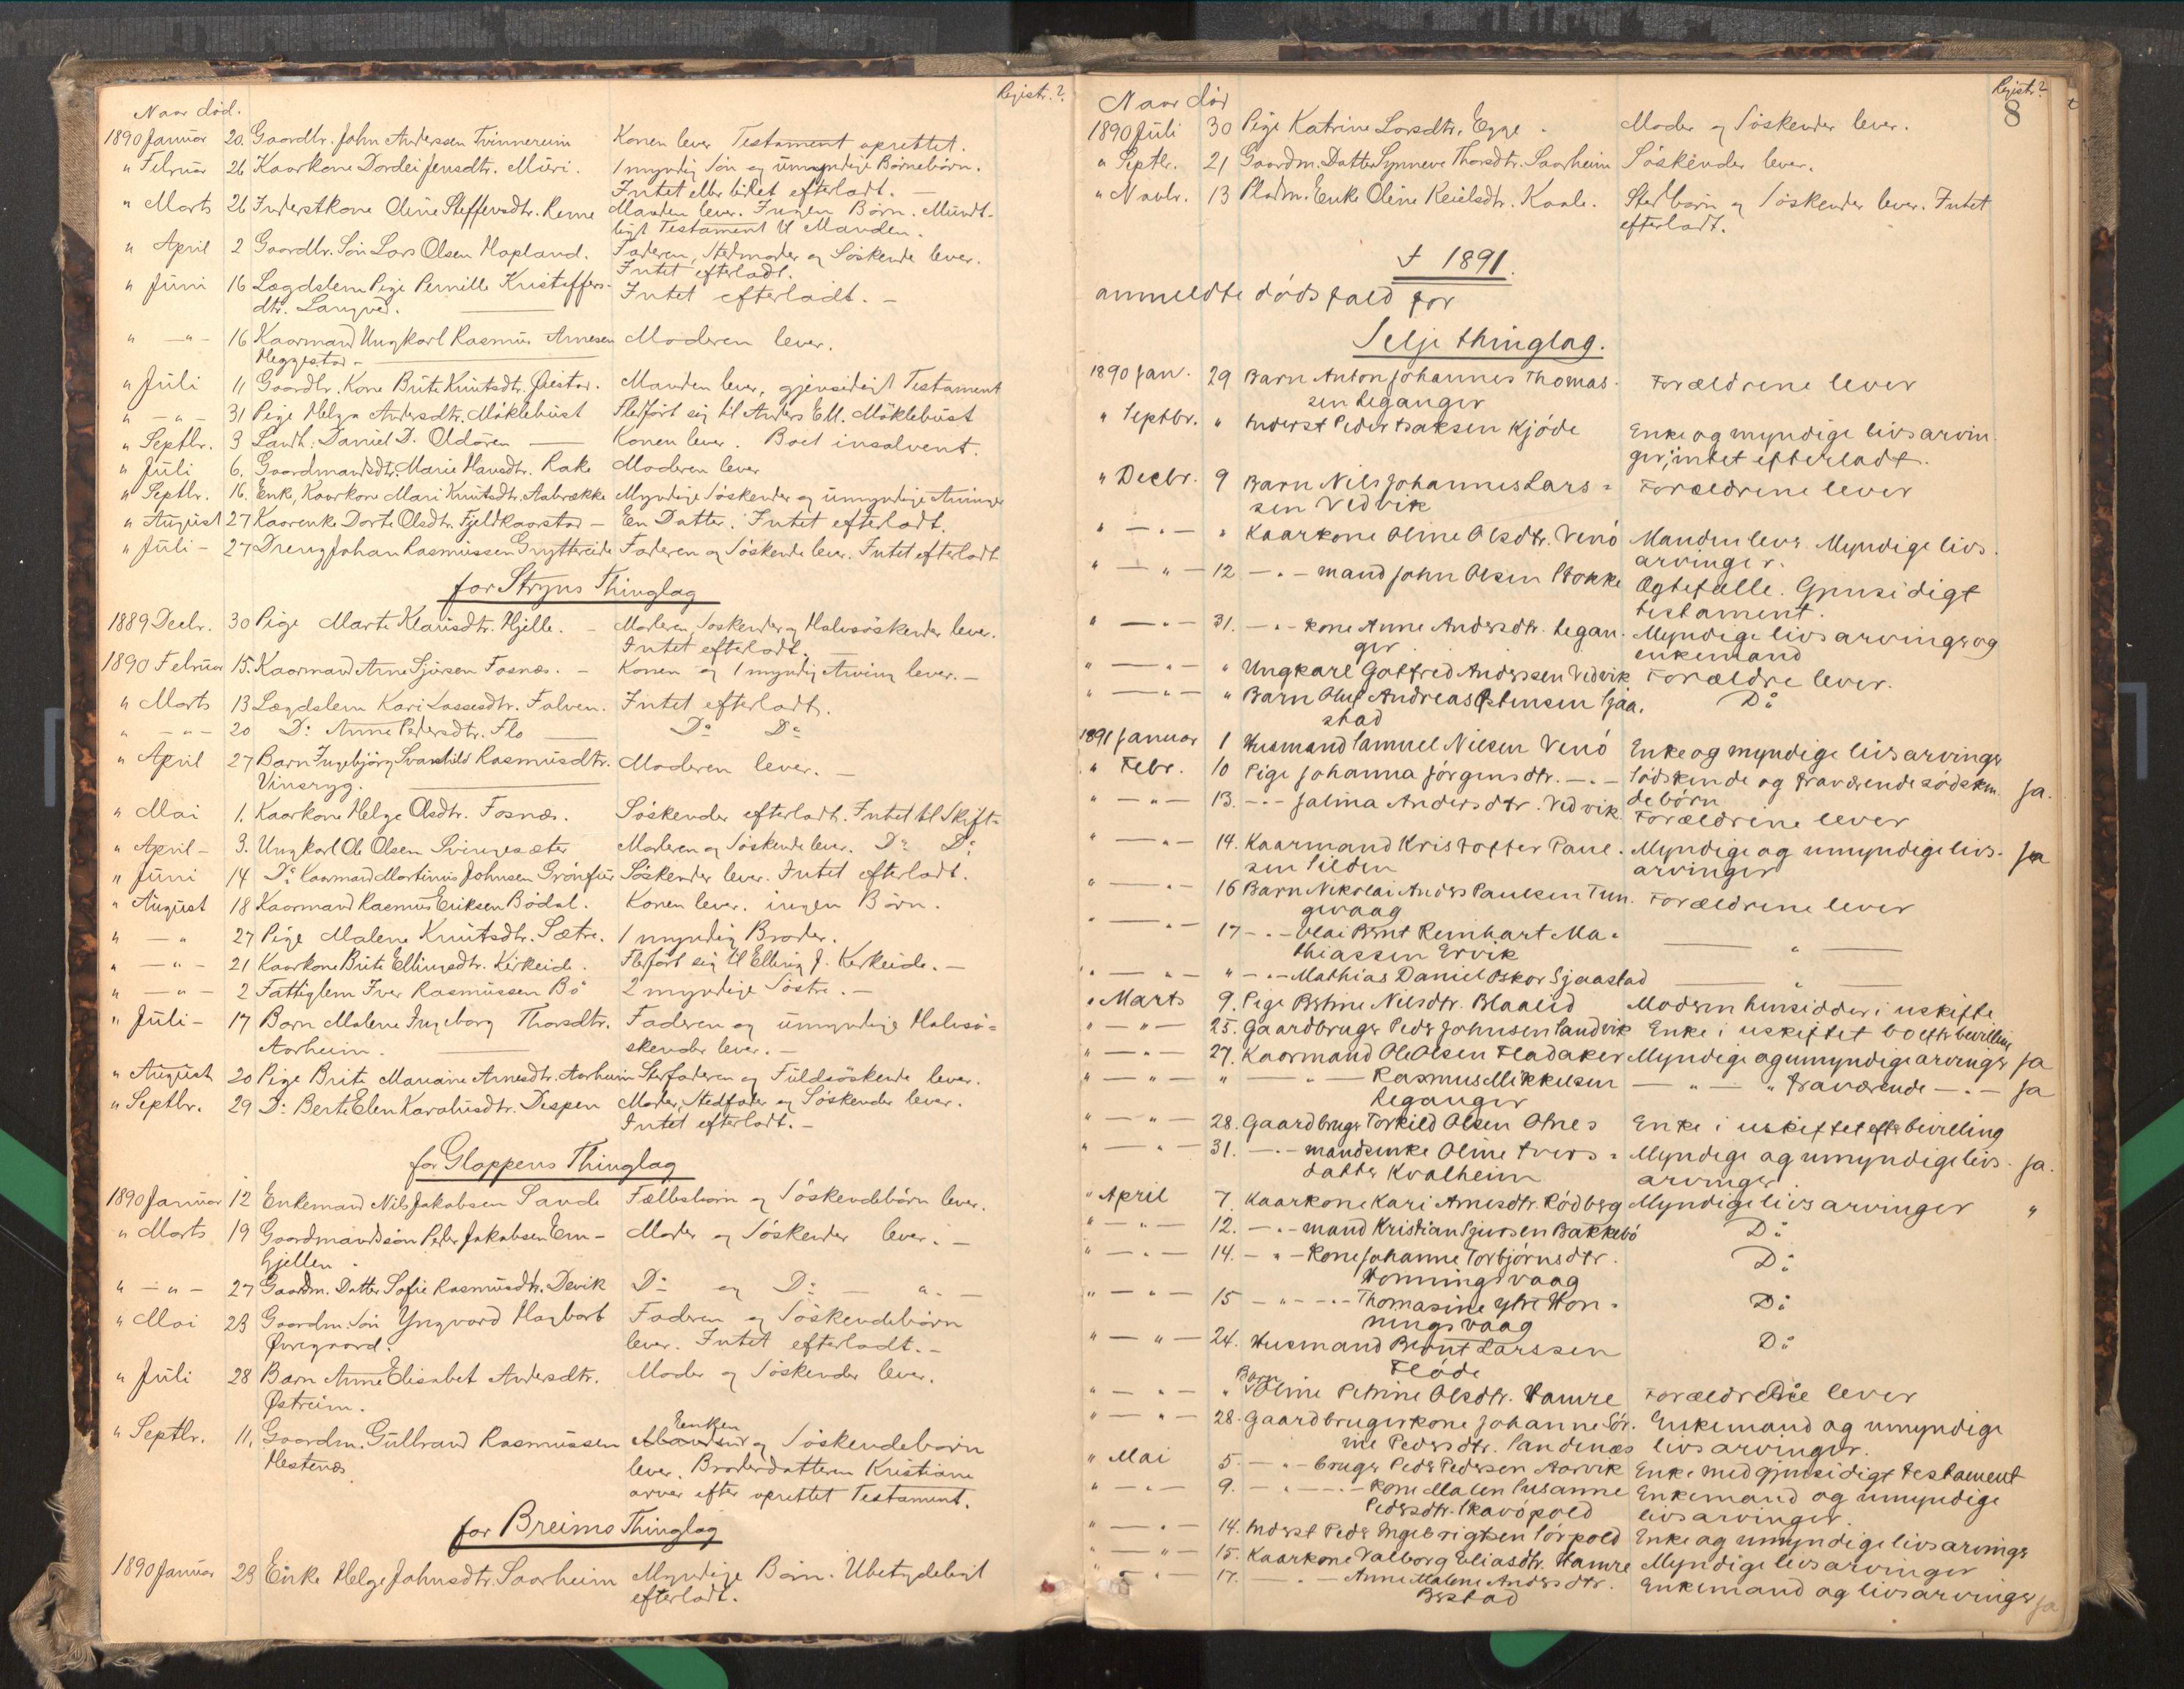 Registr.?
Naar død.
1890 Januar 20. Gaardbr. John Anderssen Tvinnereim Konen lever Testament oprettet.
" Februar 26 Kaarkone Dordei Jensdtr. Muri. 1 myndig Søn og umyndige Børnebørn.
Intet eller lidet efterladt. —
" Marts 26 Inderstkone Oline Steffensdtr. Renne Manden lever. Ingen Børn. Mündt-
ligt Testament til Manden.
" April 2 Gaardbr. Søn Lars Olsen Hopland. Faderen, Stedmoder og Söskende lever.
Intet efterladt.
" Juni 16 Lægdslem Pige Pernille Kristoffers- Intet efterladt. —
dtr. Langved.
" —"— 16 Kaarmand Ungkarl Rasmus Arnesen Moderen lever.
Heggestad —
" Juli 11 Gaardbr. Kone Brite Knutsdtr. Øiestad. Manden lever, gjensidigt Testament
" —"— 31 Pige Helga Andersdtr. Möklebust Fledfört sig til Anders E. M. Möklebust
" Septbr. 3 Landh. Daniel D. Oldören — Konen lever. Boet insolvent.
" Juli 6. Gaardmandsdtr. Marie Hansdtr. Rake Moderen lever
" Septbr. 16. Enke, Kaarkone Mari Knutsdtr. Aabrække Myndige Söskender og umyndige Arvinger
" August 27 Kaarenke Dorte Olsdtr. Fjeldkaarstad — En Datter. Intet efterladt.
" Juli — 27 Dreng Johan Rasmussen Gryttereide Faderen og Söskende lever. Intet efterladt
for Stryns Thinglag
1889 Decbr. 30 Pige Marte Klausdtr. Hjelle. — Moderen, Söskender og Halvsöskender lever.
Intet efterladt. —
1890 Februar 15. Kaarmand Arne Sjursen Fosnæs. — Konen og 1 myndig Arving lever. —
" Marts 13 Lægdslem Kari Lassesdtr. Folven. Intet efterladt.
" —"— 20 Do Anne Pedersdtr. Flo — Do Do
" April 27 Barn Ingebjörg Svanhild Rasmusdtr. Moderen lever. —
Vinsryg.
" Mai 1. Kaarkone Helge Olsdtr. Fosnæs. Söskender efterladt. Intet til Skifte
" April — 3. Ungkarl Ole Olsen Svingesæter Moderen og Söskende lever. Do Do
" Juni 14 Do Kaarmand Martinus Johnsen Grönfur Söskender lever. Intet efterladt.
" August 18 Kaarmand Rasmus Eriksen Bödal. Konen lever. ingen Børn.
" —" 27 Pige Malene Knutsdtr. Sætre. 1 myndig Broder.
" —"— 21 Kaarkone Brite Ellingsdtr. Kirkeide. Fledført sig til Elling J. Kirkeide. —
" —"— 2 Fattiglem Iver Rasmussen Bö 2 myndige Söstre. —
" Juli — 17 Barn Malene Ingeborg Thorsdtr. Faderen og umyndige Halvsö-
Aarheim. skender lever. —
" August 20 Pige Brite Mariane Arnesdtr. Aarheim Stedfaderen og Fuldsöskende lever.
" Septbr. 29 Do Berte Elen Karolusdtr. Despen Moder, Stedfader og Söskender lever.
Intet efterladt. —
for Gloppens Thinglag
1890 Januar 12 Enkemand Nils Jakobsen Sande Fællesbarn og Söskendebörn lever.
" Marts 19 Gaardmandssön Peder Jakobsen Em- Moder og Söskender lever. —
hjellen.
" —"— 27 Gaardm. Datter Sofie Rasmusdtr. Devik Do og Do — " —
" Mai 23 Gaardm. Sön Yngvard Hagbart Faderen og Söskendebörn
Øvregaard. lever. Intet efterladt. —
" Juli 28 Barn Anne Elisabet Andersdtr. Moder og Söskender lever.
Østreim.
" Septbr. 11. Gaardm. Gulbrand Rasmussen Enken og Söskendebørn
Hestenæs. lever. Broderdatteren Kristiane
arver efter oprettet Testament.
for Breims Thinglag
1890 Januar 23 Enke Helge Johnsdtr. Saarheim Myndige Børn. Ubetydeligt
efterladt.
Registr.?
8
Naar död
1890 Juli 30 Pige Katrine Larsdtr. Egge. Moder og Söskender lever.
" Septbr. 21 Gaardm. Datter Synneve Thorsdtr. Saarheim Söskender lever.
" Novbr. 13 Pladsm. Enke Oline Keielsdtr. Kaale. Stedbørn og Söskender lever. Intet
efterladt.
† 1891.
anmeldte dødsfald for
Selje thinglag.
1890 Jan. 29 Barn Anton Johannes Thomas- Forældrene lever
sen Leganger
" Septbr. " Inderst Peder Isaksen Kjöde Enke og myndige livsarvin-
ger; intet efterladt.
" Decbr. 9 Barn Nils Johannes Lars- Forældrene lever
sen Vedvik
" —"— " Kaarkone Oline Olsdtr. Venö Manden lever. Myndige livs-
arvinger.
" —"— 12 —"— mand John Olsen Stokke Ægtefælle. Gjensidigt
testament.
" —"— 31. —"— kone Anne Andersdtr. Legan- Myndige livsarvinger og
ger enkemand
" —"— " Ungkarl Gotfred Anderssen Vedvik Forældre lever.
" —"— " Barn Oluf Andreas Østensen Sjaa- Do
stad
1891 Januar 1 Husmand Samuel Nielsen Venö Enke og myndige livsarvinger
" Febr. 10 Pige Johanna Jörgensdtr. —"— Södskende og fraværende södsken- ja.
debörn
" —"— 13. —"— Jalina Andersdtr. Vedvik. Forældrene lever
" —"— 14. Kaarmand Kristoffer Paul- Myndige og umyndige livs- ja
sen Silden arvinger
" —"— 16 Barn Nikolai Anders Paulsen Tun- Forældrene lever
gevaag
" —"— 17 —"— Olai Bernt Reinhart Ma- — " —
thiassen Ervik
" —"— " —"— Mathias Daniel Oskar Sjaastad — " —
" Marts 9. Pige Bertine Nilsdtr. Blaalid Modern hensidder i uskifte
" —"— 25. Gaardbruger Peder Johnsen Sandvik Enke i uskiftet bo efter bevilling
" —"— 27. Kaarmand Ole Olsen Fladaker Myndige og umyndige arvinger ja
" —"— " —"— Rasmus Mikkelsen —"— " fraværende —"— ja
Leganger
" —"— 28. Gaardbruger Torkild Olsen Otnes Enke i uskiftet efter bevilling
" —"— 31. —"— mandsenke Oline Ivers- Myndige og umyndige livs- ja.
datter Kvalheim arvinger
" April 7. Kaarkone Kari Arnesdtr. Rødberg Myndige livsarvinger "
" —"— 12. —"— mand Kristian Sjursen Bakkebö Do
" —"— 14. —"— kone Johanne Torbjörnsdtr. Do
Honningsvaag
" —"— 15 —"— —"— Thomasine ytre Hon- Do
ningsvaag
" —"— 24. Husmand Bernt Larssen Do
Flöde
" —"— " Barn Oline Petrine Olsdtr. Hamre Forældrene lever
" —"— 28. Gaardbrugerkone Johanne Sör- Enkemand og umyndige
ine Pedersdtr. Sandnæs livsarvinger.
" Mai 5. —"— bruger Peder Pedersen Aarvik Enke med gjensidigt testament
" —"— 9. —"— —"— kone Malen Susanne Enkemand og umyndige
Pedersdtr. Skavöpold livsarvinger.
" —"— 14. Inderst Peder Ingebrigtsen Sörpold Enke og umyndige livsarvinger
" —"— 15. Kaarkone Valborg Eliasdtr. Hamre Myndige livsarvinger
" —"— 17. —"— Anne Malene Andersdtr. Enkemand og livsarvinger ja
Berstad